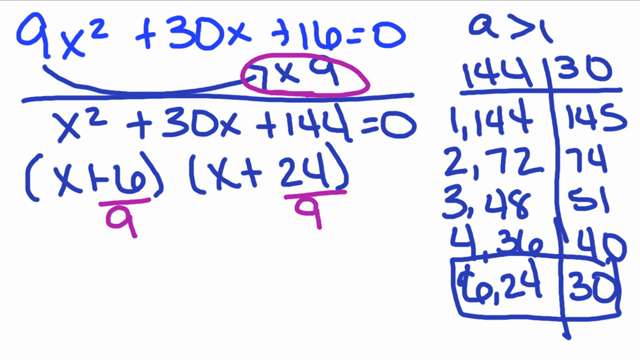 9x² + 30x + 16 = 0
x 9
x² + 30x + 144 = 0
(x + 6/9) (x + 24/9)
a > 1
144 | 30
1, 144 | 145
2, 72 | 74
3, 48 | 51
4, 36 | 40
6, 24 | 30